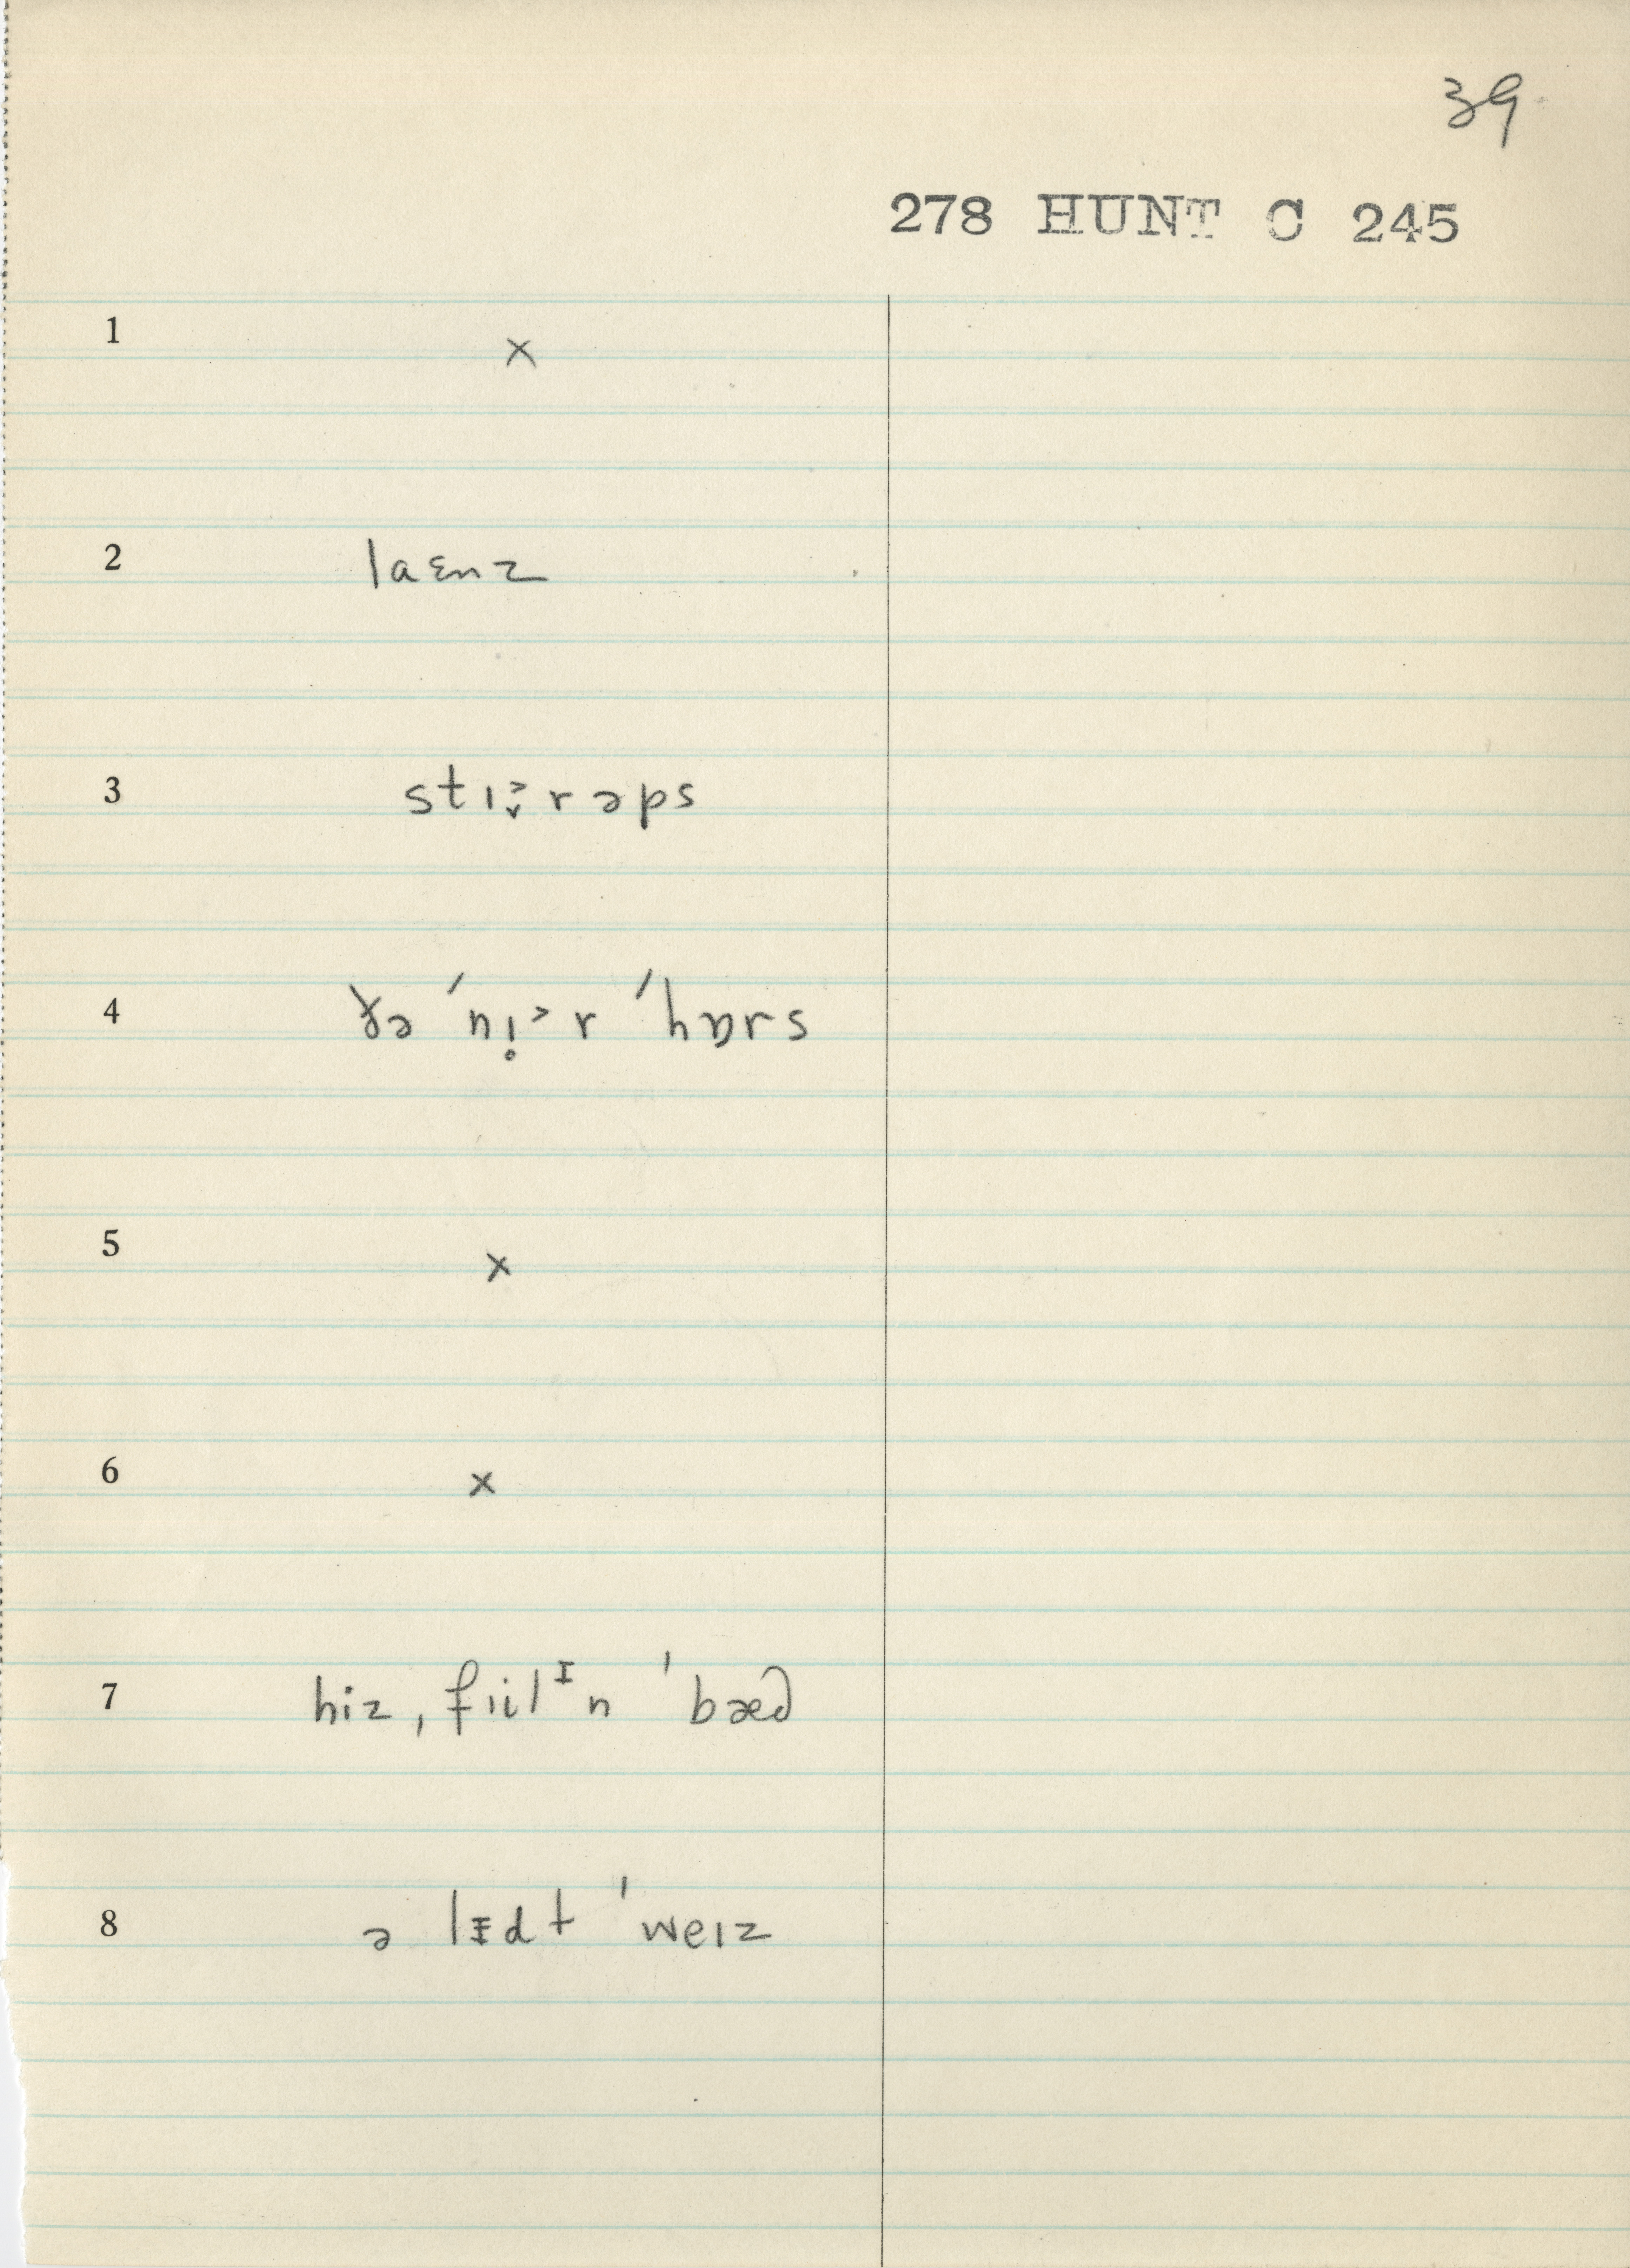 39
278 HUNT C 245
1 ×
2 laɛnz
3 stɪ˃̬rəps
4 ðə ˈnɪ̣˃r ˈhɒrs
5 ×
6 ×
7 hiz ˌfɪilᴵn ˈbæd
8 ə lᵻdt ˈweɪz